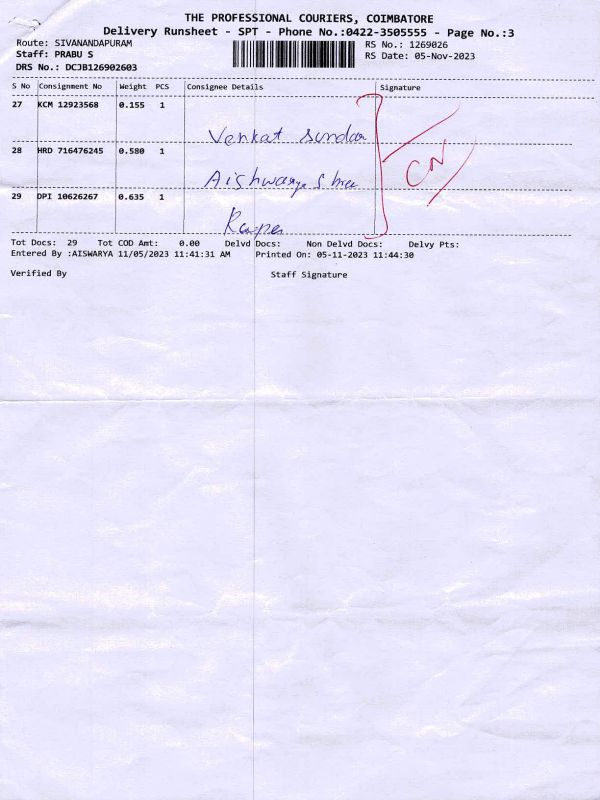 THE PROFESSIONAL COURIERS, COIMBATORE
Delivery Runsheet - SPT - Phone No.:0422-3505555 - Page No.:3
Route: SIVANANDAPURAM RS No.: 1269026
Staff: PRABU S RS Date: 05-Nov-2023
DRS No.: DCJB126902603
S No Consignment No Weight PCS Consignee Details Signature
27 KCM 12923568 0.155 1
Venkat sundar
28 HRD 716476245 0.580 1
CN
Aishwarya Shree
29 DPI 10626267 0.635 1
Tot Docs: 29 Tot COD Amt: 0.00 Delvd Docs: Non Delvd Docs: Delvy Pts:
Entered By :AISWARYA 11/05/2023 11:41:31 AM Printed On: 05-11-2023 11:44:30
Verified By Staff Signature